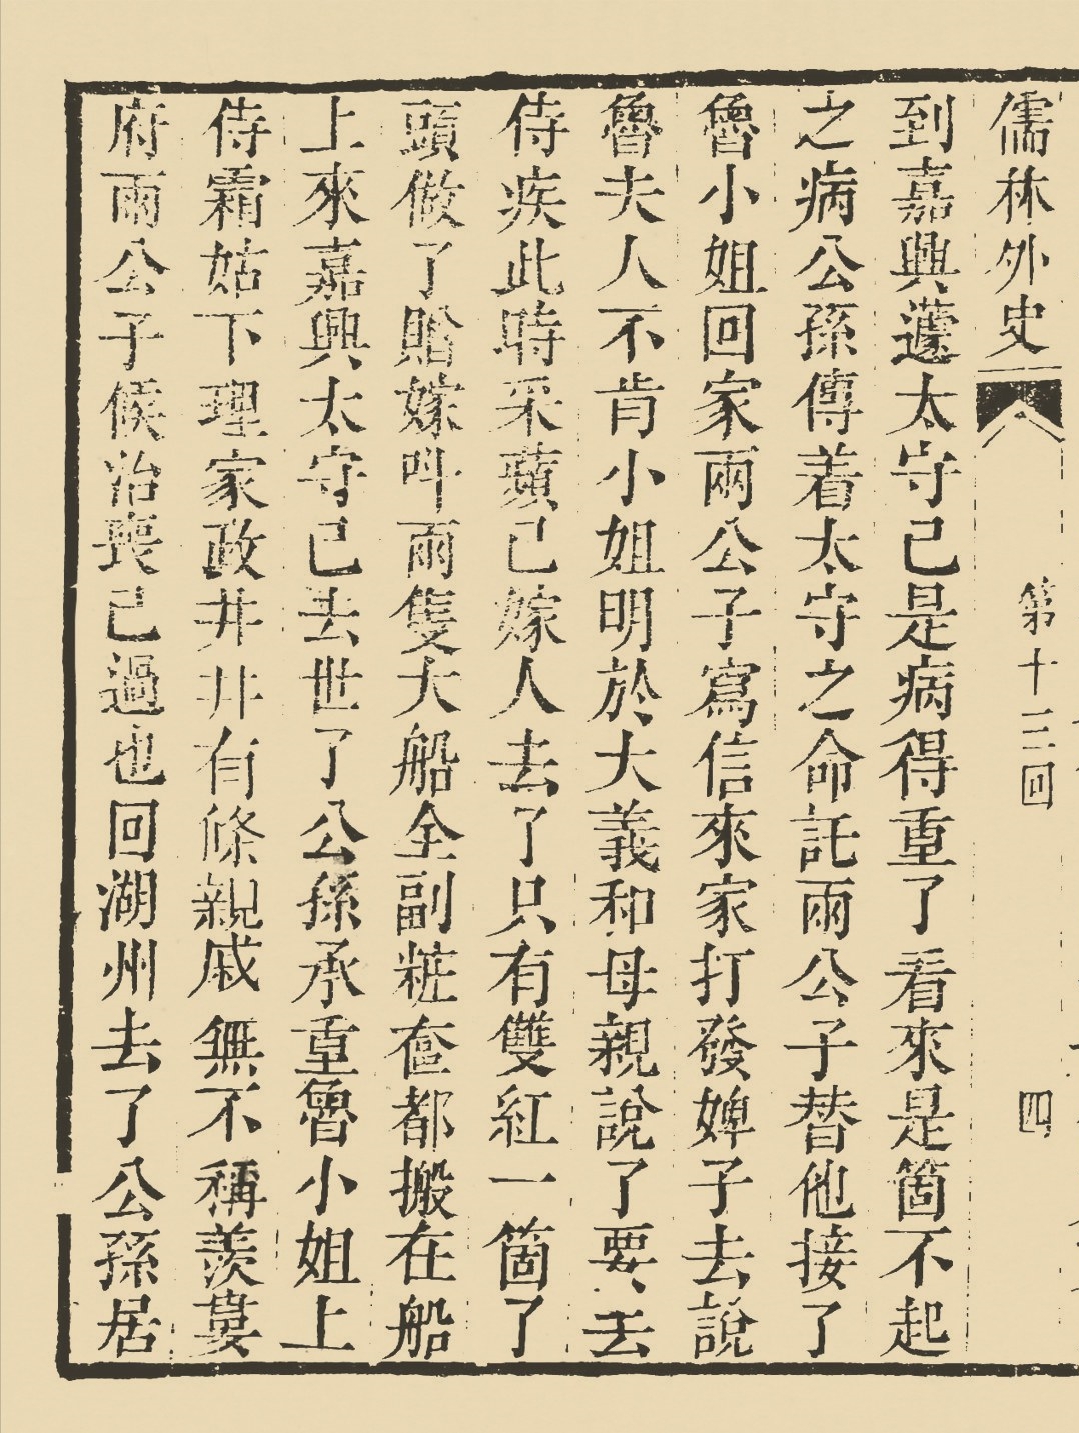 儒林外史 第十三回 四
到嘉興蘧太守已是病得重了看來是箇不起
之病公孫傳着太守之命託兩公子替他接了
魯小姐回家兩公子寫信來家打發婢子去說
魯夫人不肯小姐明於大義和母親說了要去
侍疾此時采蘋已嫁人去了只有雙紅一箇了
頭做了賠嫁呌兩隻大船全副粧奩都搬在船
上來嘉興太守已去世了公孫承重魯小姐上
侍霜姑下理家政井井有條親戚無不稱羨婁
府兩公子候治喪已過也回湖州去了公孫居